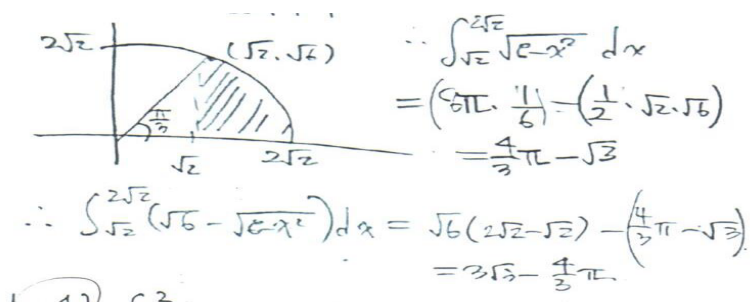 2√2
(√2, √6)
π/3
√2
2√2
∴ ∫_{√2}^{2√2} √(8-x²) dx
= (8π · 1/6) - (1/2 · √2 · √6)
= 4/3 π - √3
∴ ∫_{√2}^{2√2} (√6 - √(8-x²)) dx = √6(2√2-√2) - (4/3 π - √3)
= 3√3 - 4/3 π.